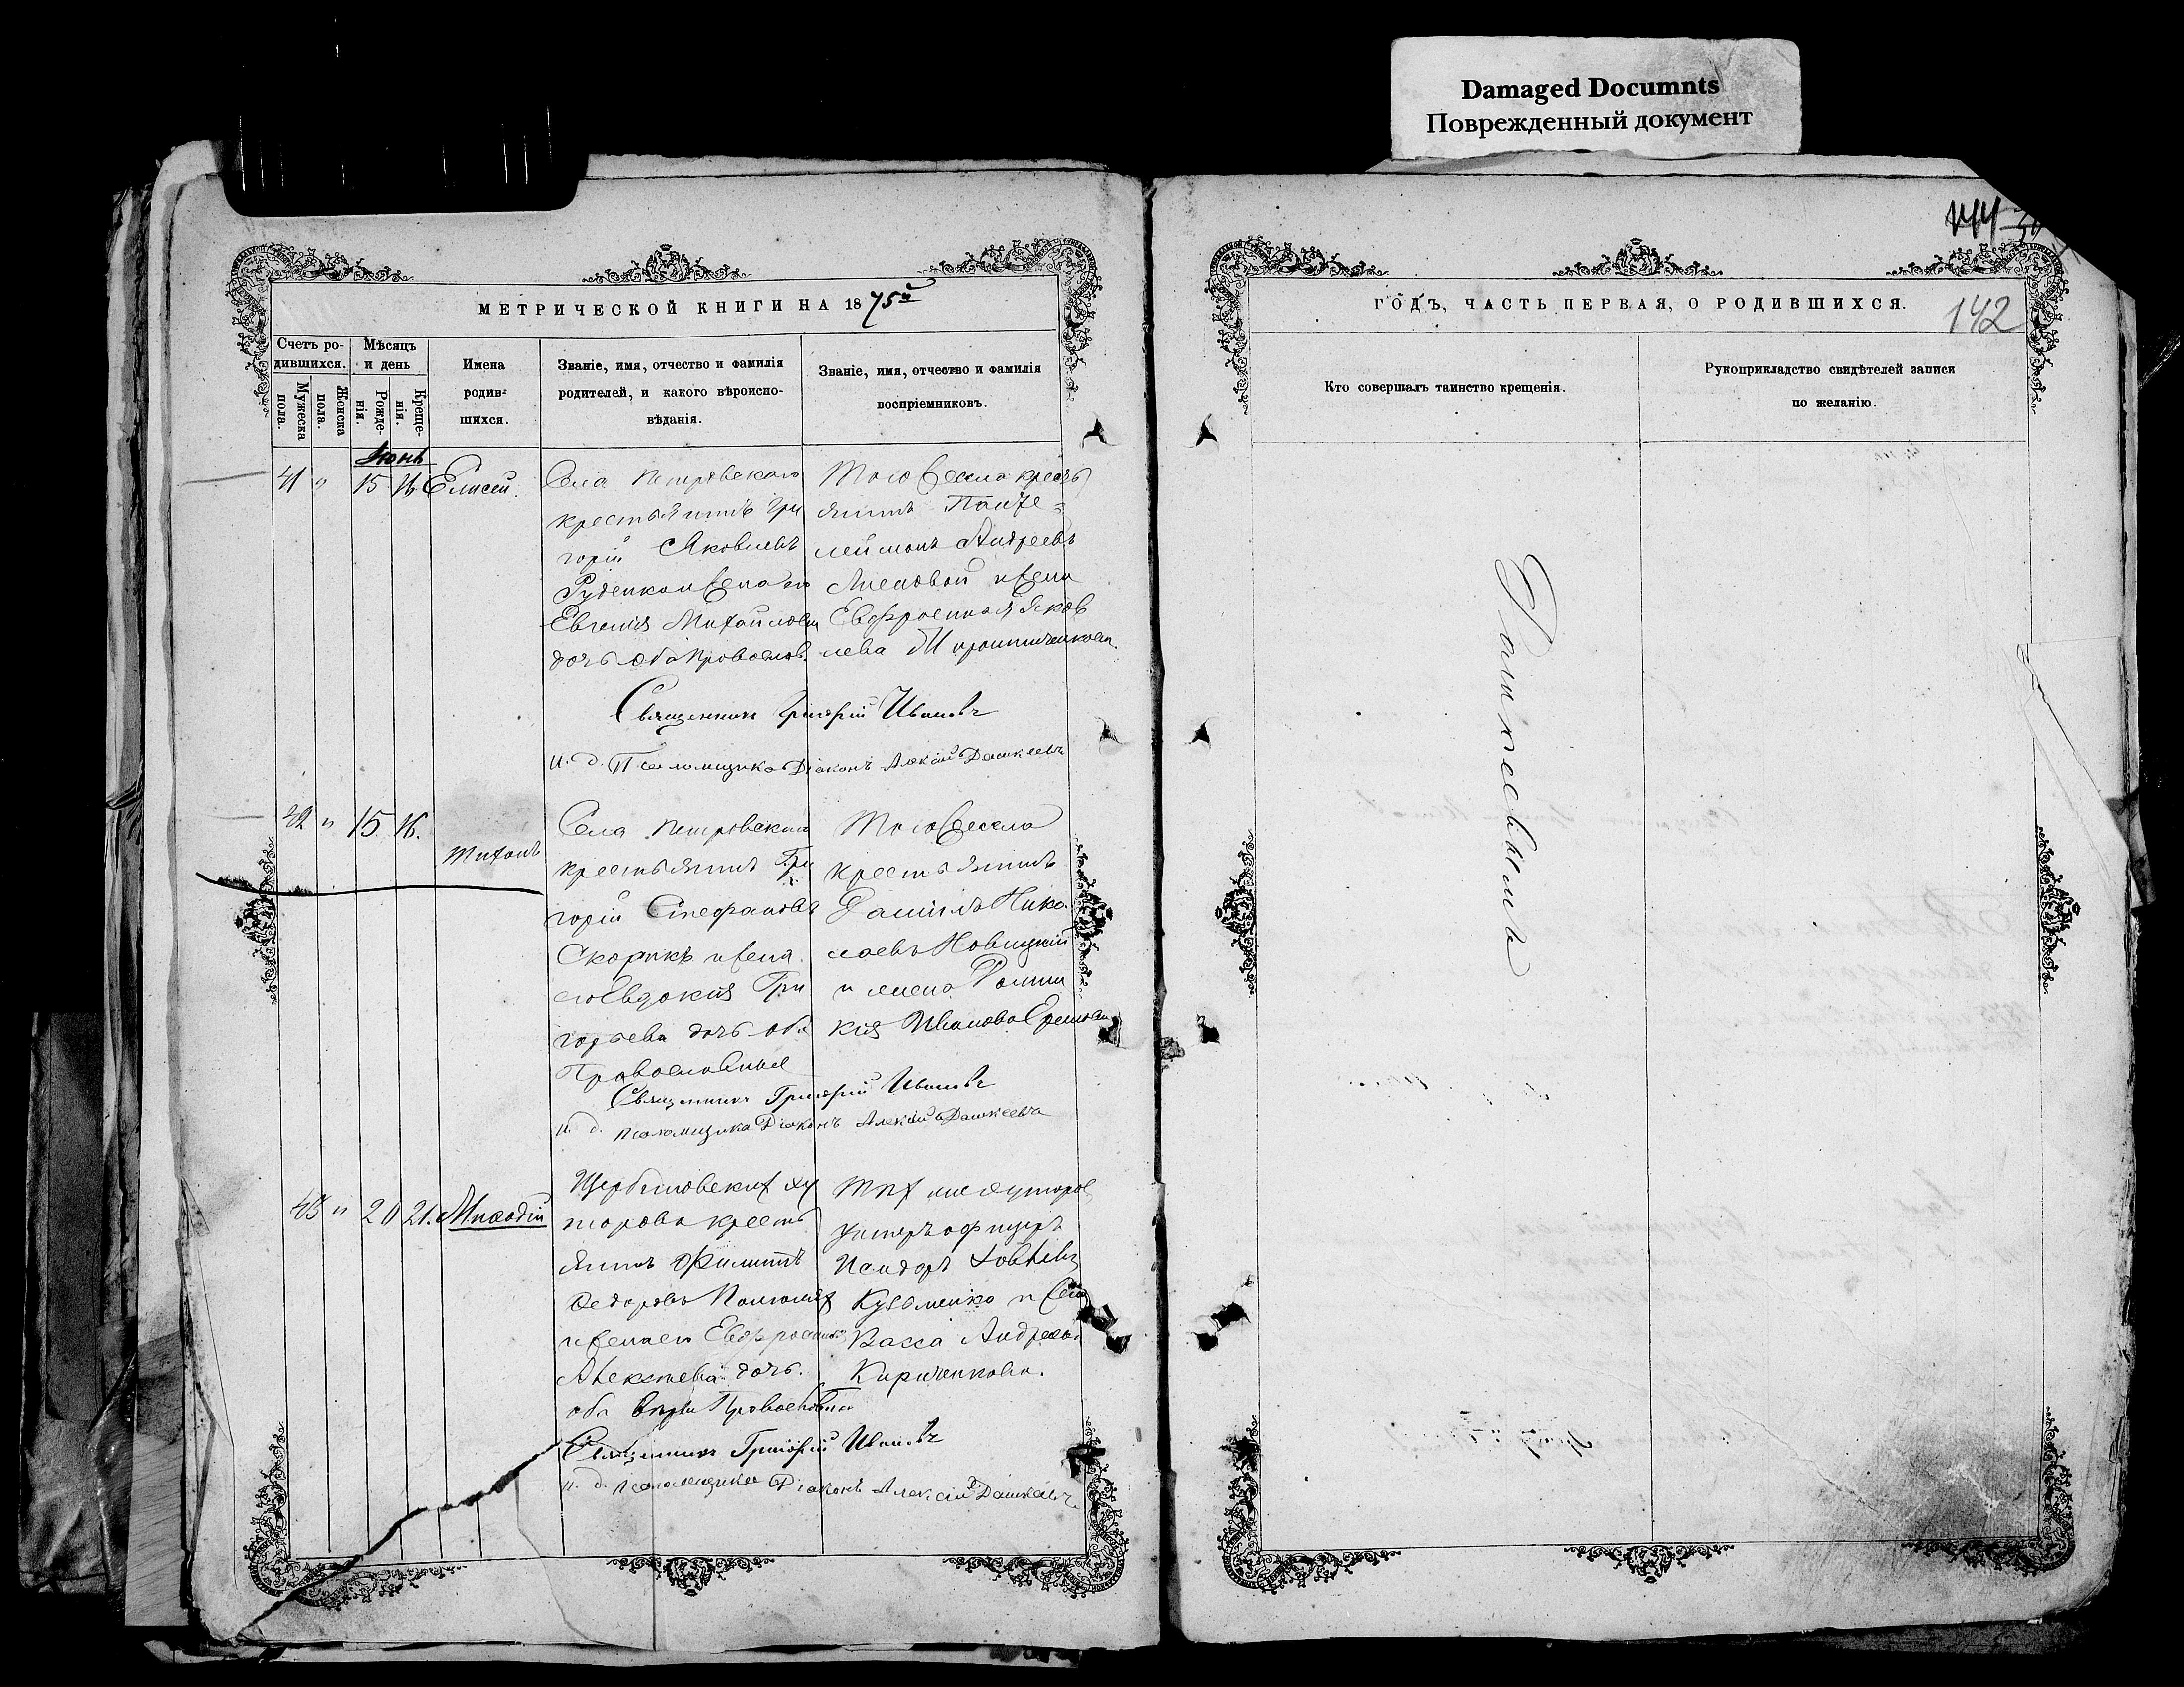 Damaged Documnts
Поврежденный документ
142
МЕТРИЧЕСКОЙ КНИГИ НА 1875й
ГОДЪ, ЧАСТЬ ПЕРВАЯ, О РОДИВШИХСЯ.
Счетъ ро-
дившихся.
Мужеска
пола.
Женска
пола.
Мѣсяцъ
и день
Рожде-
нія.
Креще-
нія.
Имена
родив-
шихся.
Званіе, имя, отчество и фамилія
родителей, и какого вѣроиспо-
вѣданія.
Званіе, имя, отчество и фамилія
воспріемниковъ.
Кто совершалъ таинство крещенія.
Рукоприкладство свидѣтелей записи
по желанію.
Іюнь
41 " 15 16 Елисей.
Села Петровскаго
крестьянинъ Гри
горій Яковлевъ
Руденко и жена его
Евгенія Михайлова
дочь оба Православ.
Того же села кресть
янинъ Панте=
леймонъ Андреевъ
и жена
Евфросинія Яков
лева
Священникъ Григорій Ивановъ
и. д. Псаломщика Діаконъ Алексій Дашкеевъ
42 " 15 16. Тихонъ
Села Петровскаго
крестьянинъ Гри
горій Стефановъ
Скорикъ и жена
его Евдокія Гри
горьева дочь оба
Православные
Того же села
крестьянинъ
Даниилъ Нико
лаевъ Новицкій
и жена
кія Иванова
Священникъ Григорій Ивановъ
и. д. псаломщика Діаконъ Алексій Дашкеевъ
43 " 20 21. Меѳодій
Щербиновскихъ ху
торовъ кресть
янинъ Филиппъ
Ѳедоровъ
и жена его Евфросинія
Алексѣева дочь.
оба Православные
Тѣхъ же хуторовъ
унтеръ офицеръ
Исидоръ
Кузьменко и
Васса Андреева
Кириченкова.
Священникъ Григорій Ивановъ
и. д. псаломщика Діаконъ Алексій Дашкеевъ